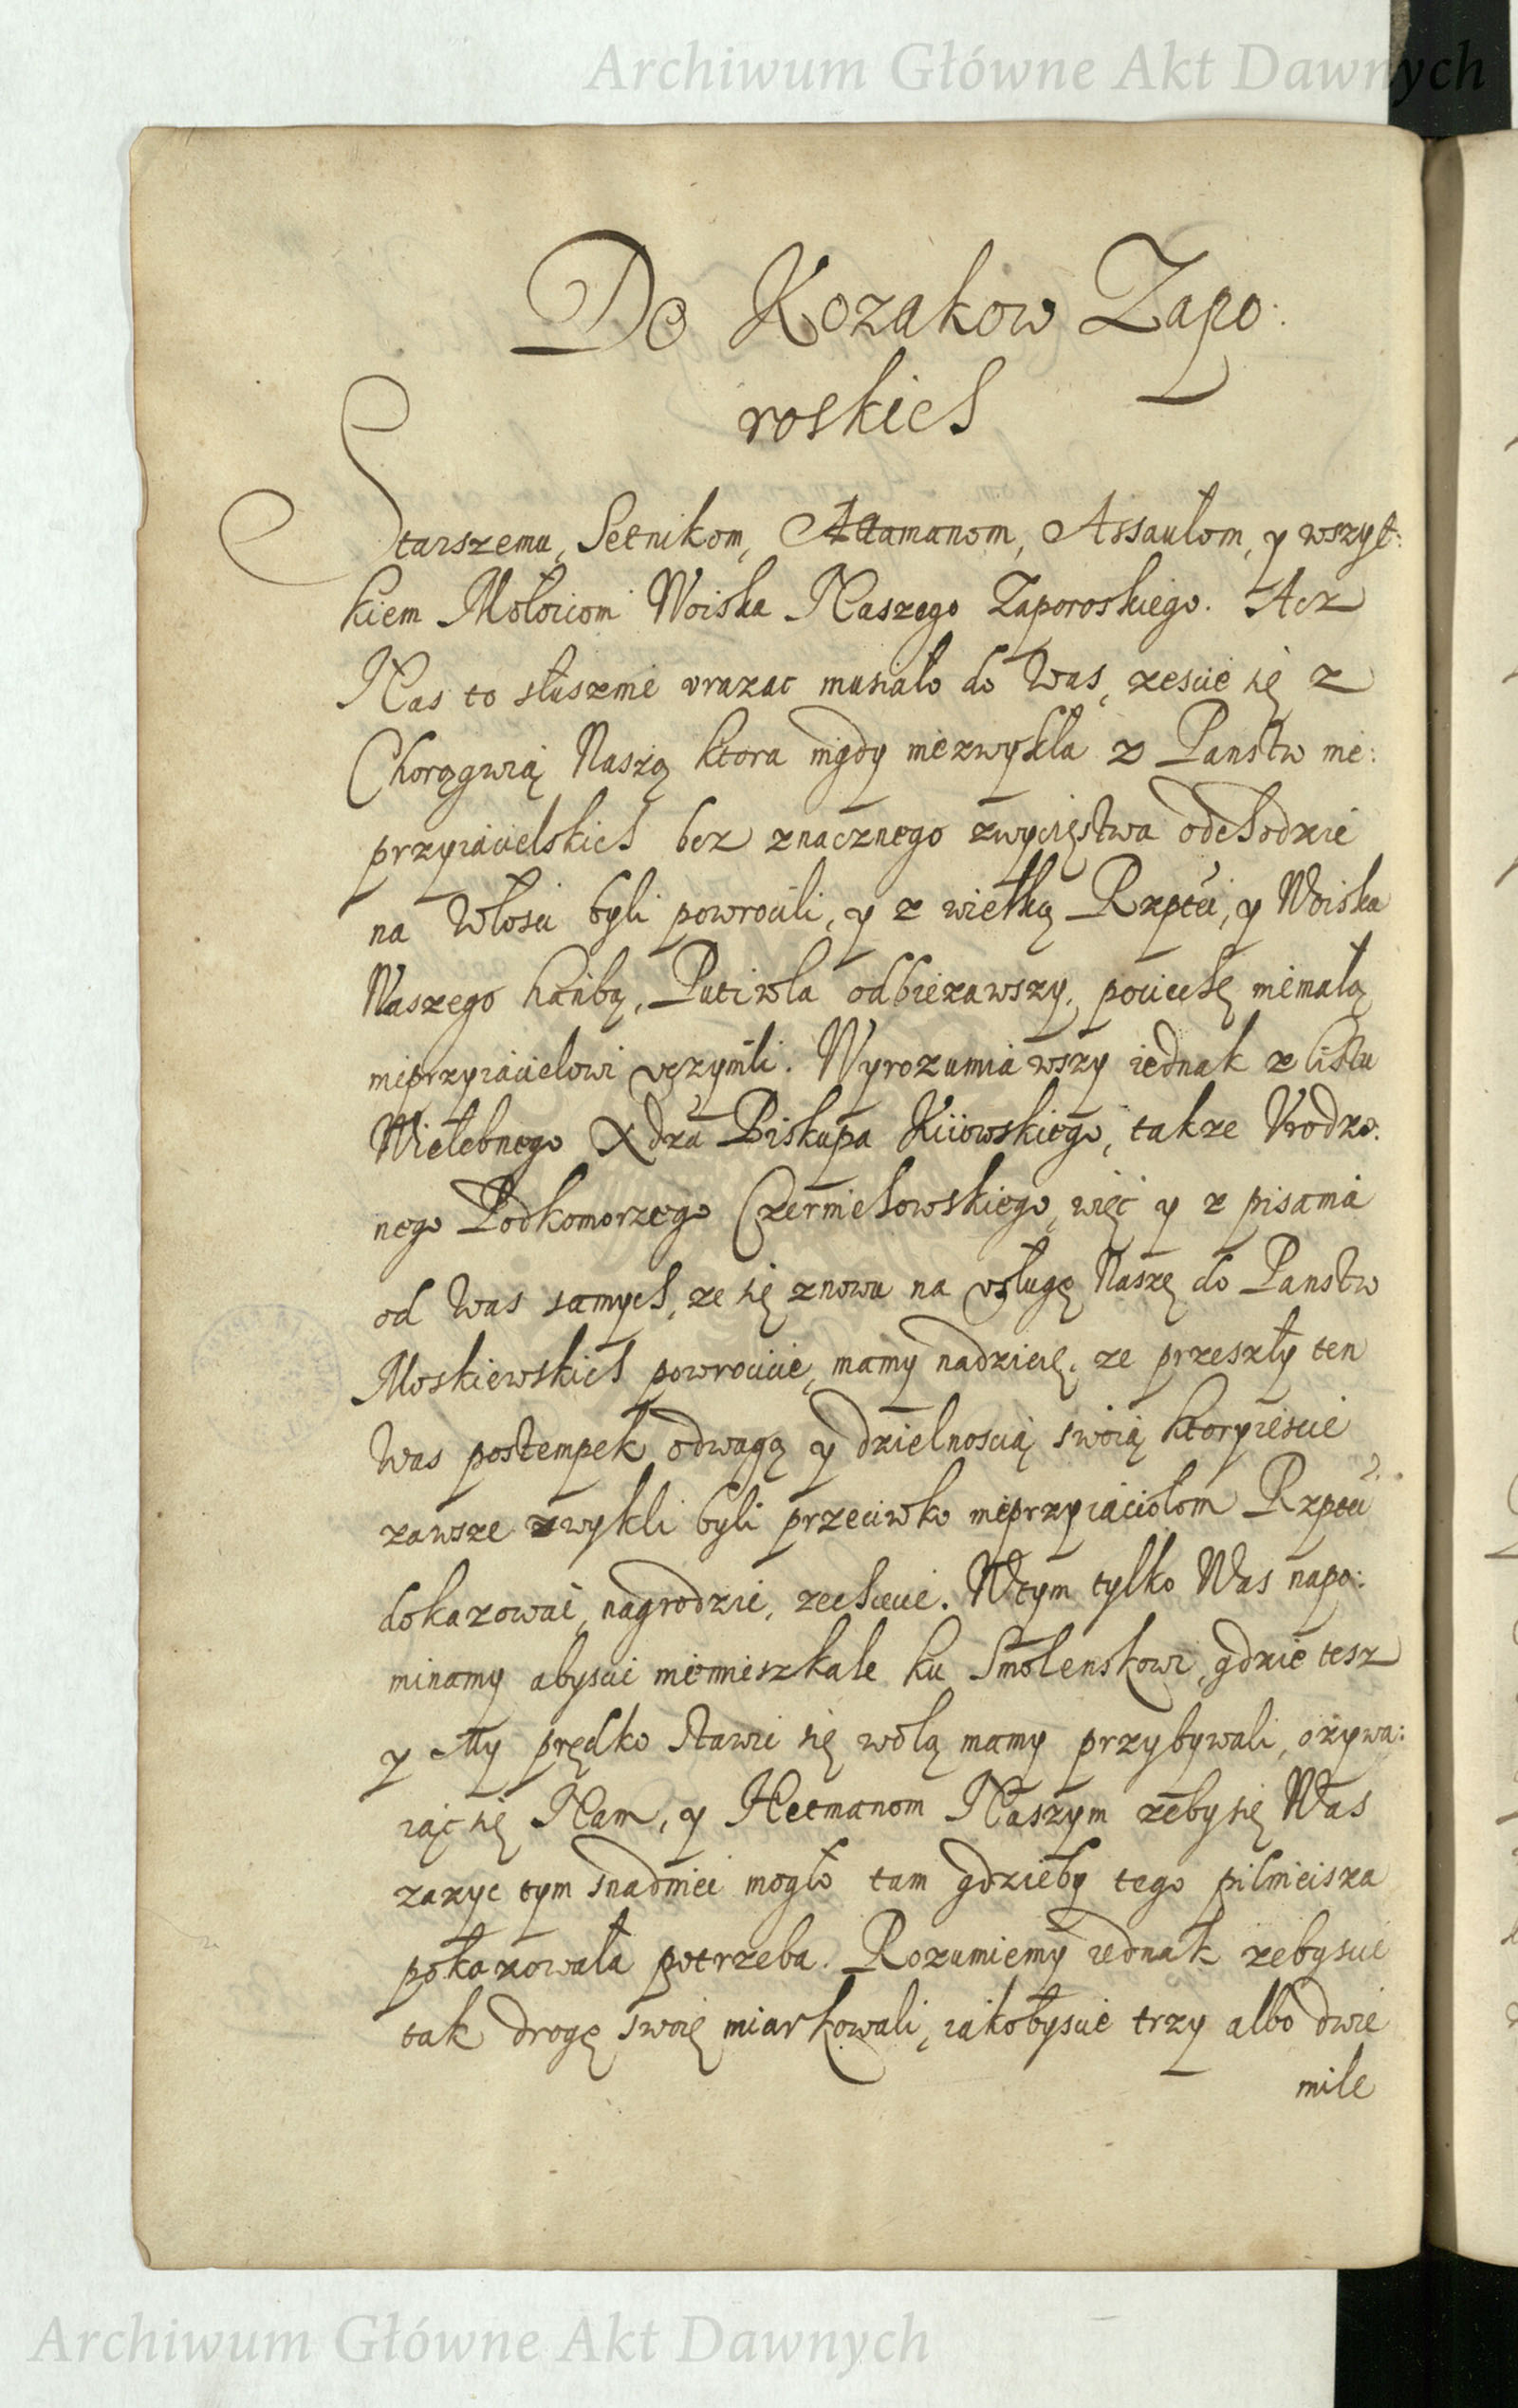 Archiwum Główne Akt Dawnych
Do Kozakow Zapo:
roskich
Starszemu, Setnikom, Attamanom, Assaułom, y wszyt:
kiem Mołoicom Woiska Naszego Zaporoskiego. Acz
Nas to słusznie vrazac musiało do Was, zescie się z
Chorągwią Naszą ktora nigdy niezwykła z Panstw nie:
przyiacielskich bez znacznego zwycięstwa odchodzic
na Włosci byli powrocili, y z wielką Rzptei, y Woiska
Naszego hanbą, Putiwla odbiezawszy, pociechę niemałą
nieprzyiacielowi vczynili. Wyrozumiawszy iednak z listu
Wielebnego Xdza Biskupa Kiiowskiego, takze Vrodzo:
nego Podkomorzego Czerniehowskiego, więc y z pisania
od Was samych, ze się znowu na vsługę Naszę do Panstw
Moskiewskich powrocicie, mamy nadzieię, ze przeszły ten
Was postempek odwagą y dzielnoscią swoią ktoryiescie
zawsze zwykli byli przeciwko nieprzyiaciołom Rzptei
dokazowac, nagrodzic, zechcecie. Wtym tylko Was napo:
minamy abyscie niemieszkale ku Smolenskowi, gdzie tesz
y My prędko stawic się wolą mamy przybywali, ozywa:
iąc się Nam, y Hetmanom Naszym zeby się Was
zazyc tym snadniei mogło tam gdzieby tego pilnieisza
pokazowała potrzeba. Rozumiemy iednak zebyscie
tak drogę swoię miarkowali, iakobyscie trzy albo dwie
mile
Archiwum Główne Akt Dawnych